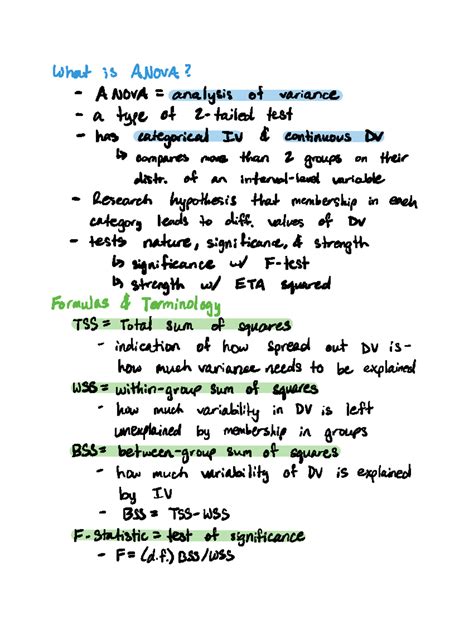 What is ANOVA?
- ANOVA = analysis of variance
- a type of 2-tailed test
- has categorical IV & continuous DV
↳ compares more than 2 groups on their
distr. of an interval-level variable
- Research hypothesis that membership in each
category leads to diff. values of DV
- tests nature, significance, & strength
↳ significance w/ F-test
↳ strength w/ ETA squared
Formulas & Terminology
TSS = Total sum of squares
- indication of how spread out DV is -
how much variance needs to be explained
WSS = within-group sum of squares
- how much variability in DV is left
unexplained by membership in groups
BSS = between-group sum of squares
- how much variability of DV is explained
by IV
- BSS = TSS-WSS
F-Statistic = test of significance
- F = (d.f.) BSS/WSS